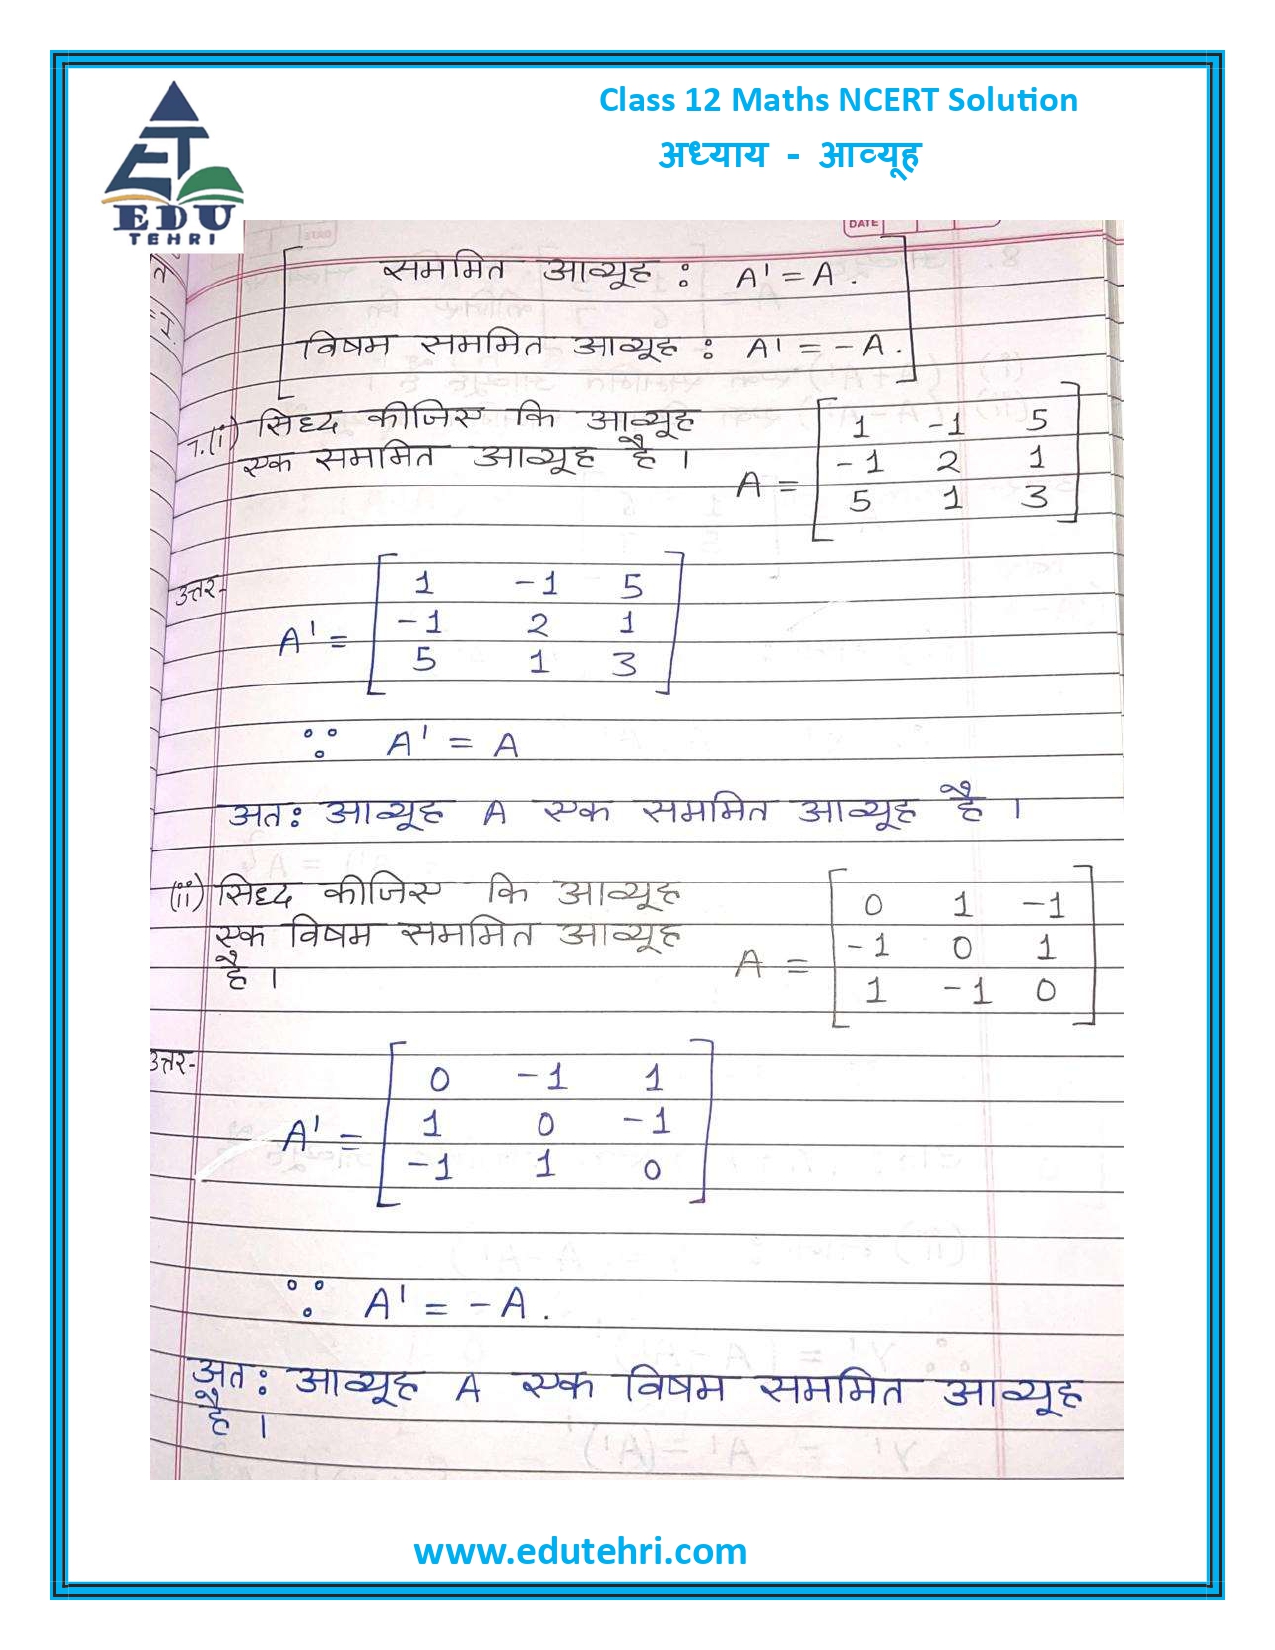 Class 12 Maths NCERT Solution
अध्याय - आव्यूह
EDU
TEHRI
DATE
सममित आव्यूह : A' = A .
विषम सममित आव्यूह : A' = - A .
7.(i) सिध्द कीजिए कि आव्यूह
एक सममित आव्यूह है ।
A = [
1 -1 5
-1 2 1
5 1 3 ]
उत्तर-
A' = [
1 -1 5
-1 2 1
5 1 3 ]
∵ A' = A
अतः आव्यूह A एक सममित आव्यूह है ।
(ii) सिध्द कीजिए कि आव्यूह
एक विषम सममित आव्यूह
है ।
A = [
0 1 -1
-1 0 1
1 -1 0 ]
उत्तर-
A' = [
0 -1 1
1 0 -1
-1 1 0 ]
∵ A' = - A .
अतः आव्यूह A एक विषम सममित आव्यूह
है ।
www.edutehri.com